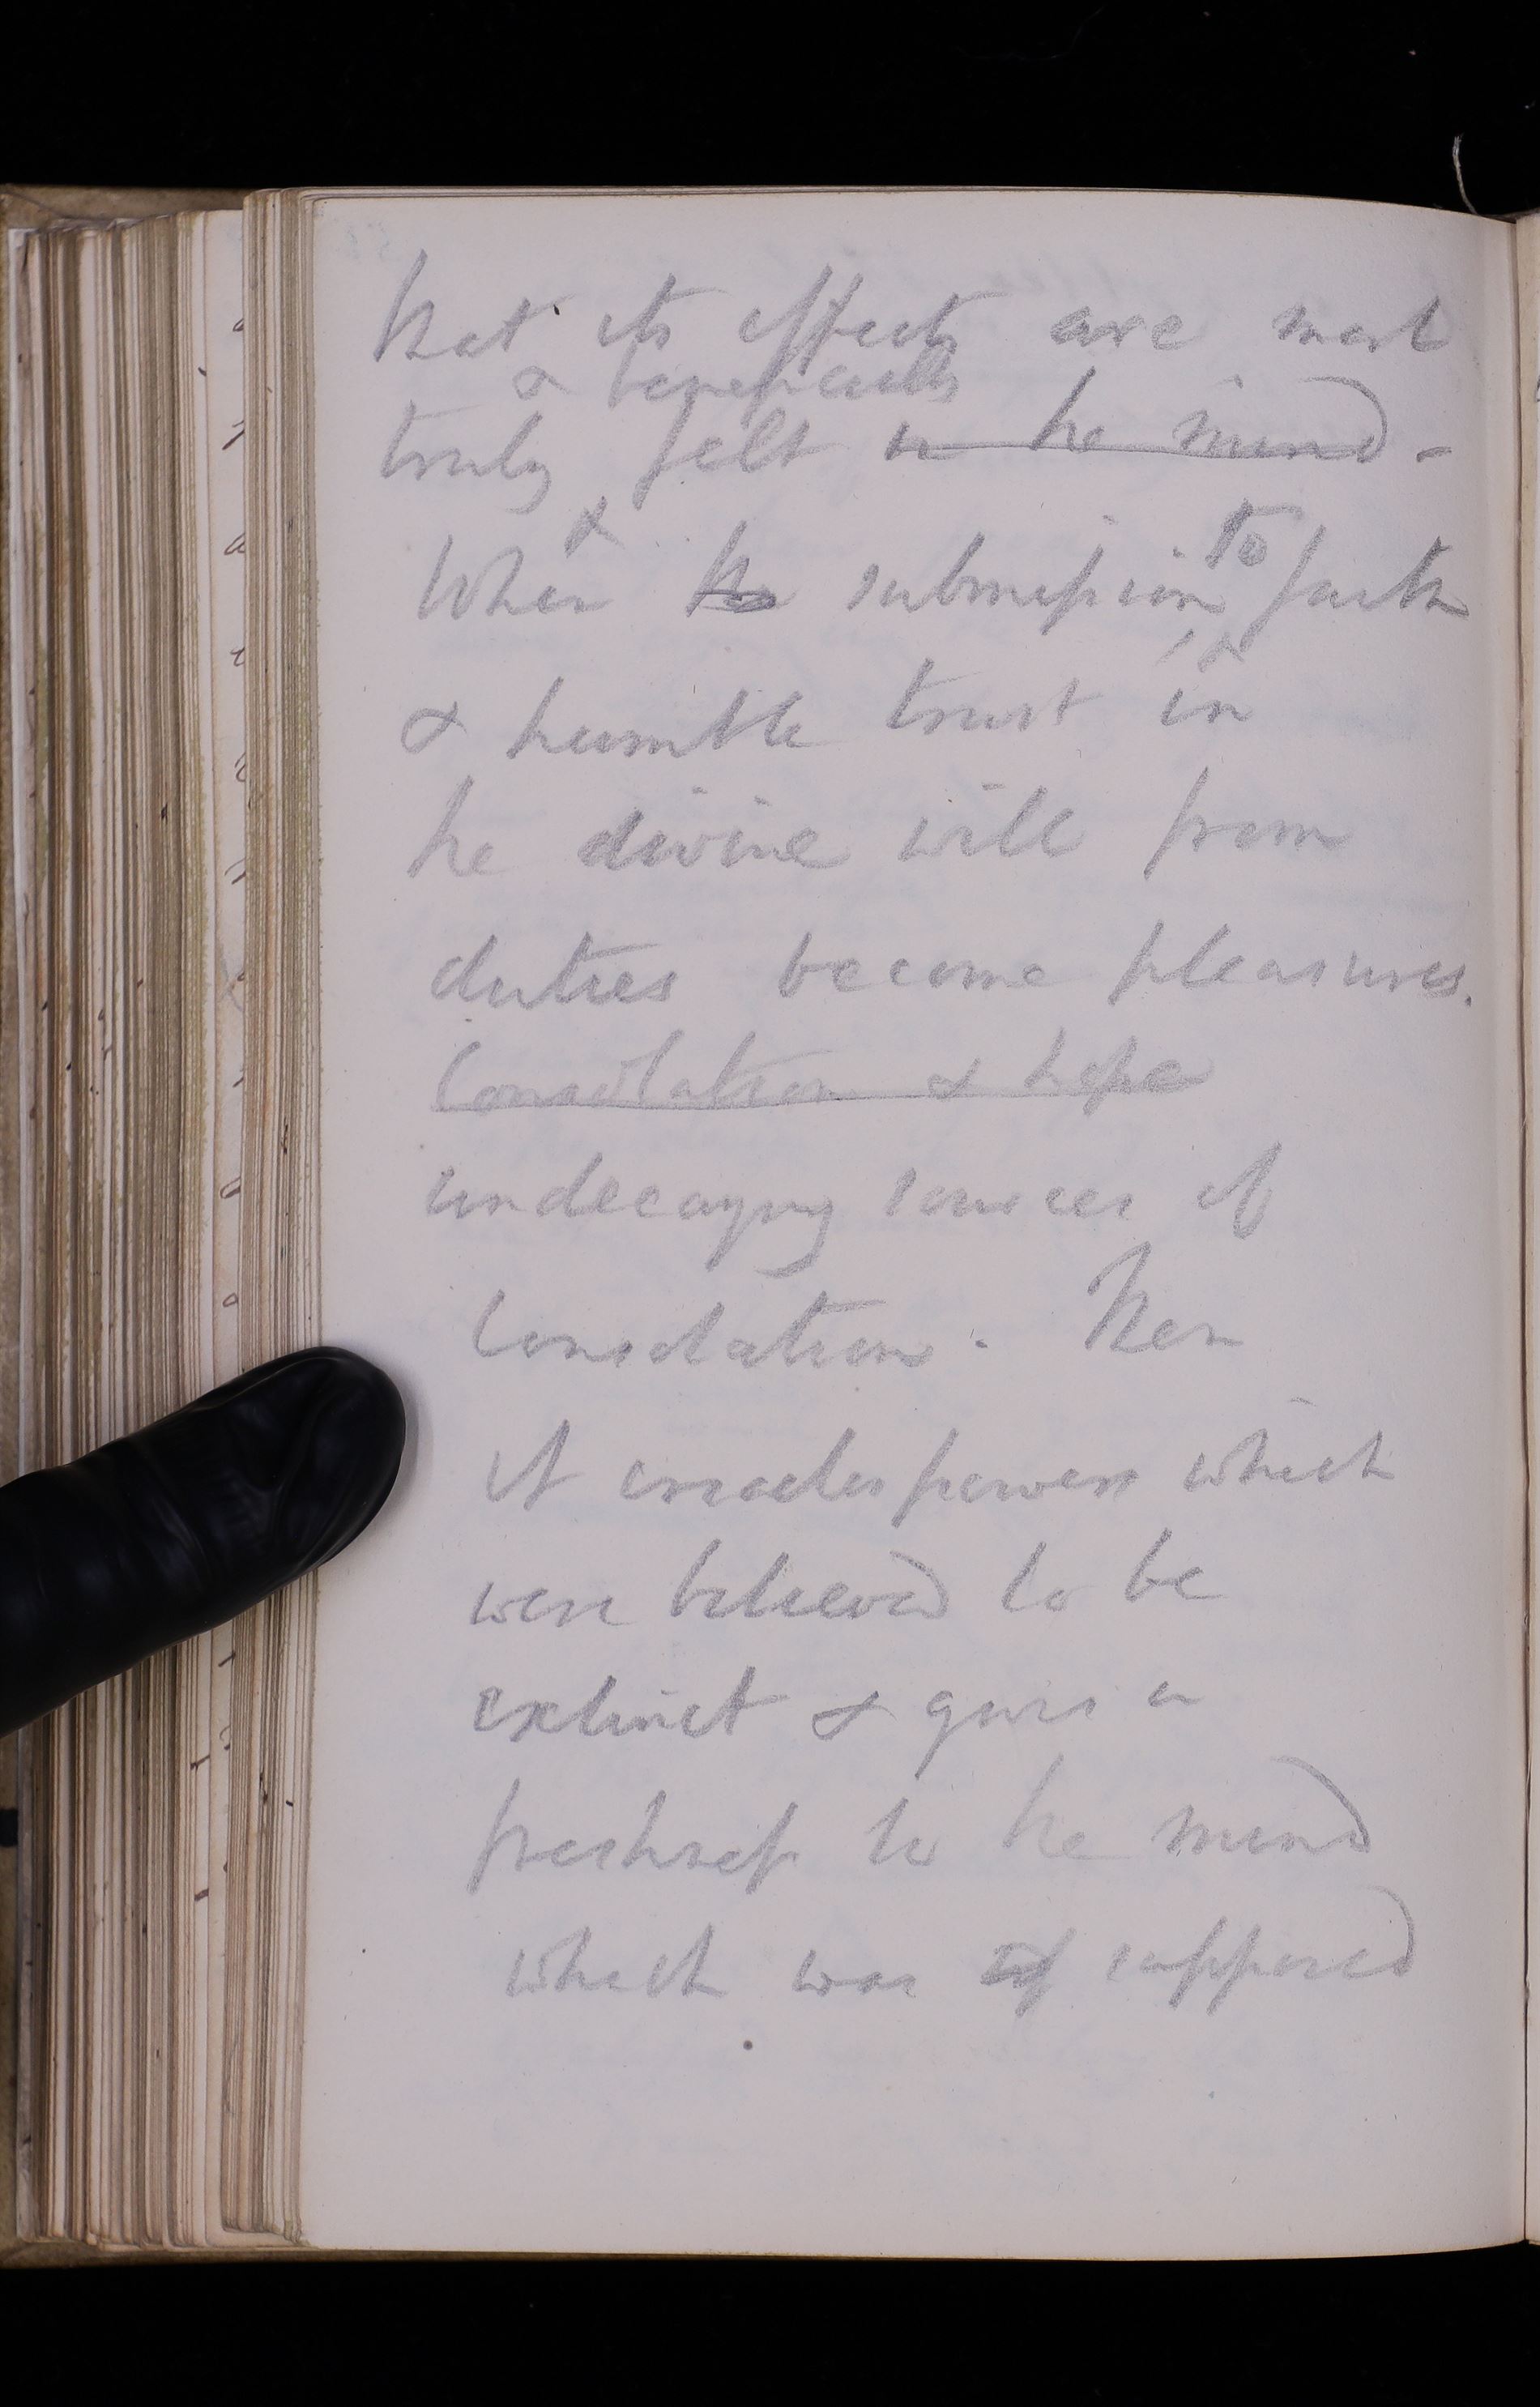 that its effects are most
& beneficially
truly felt in the mind -
When the submission to faith
& humble trust in
the divine will from
duties become pleasures.
Consolation & hope
undecaying sources of
Consolation. Then
it creates powers which
were believed to be
extinct & gives a
freshness to the mind
which was supposed